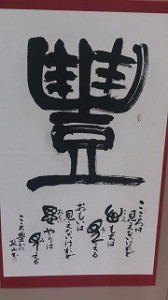 豐
こころは
見えないけれど
見える
おもいは
見えないけれど
思やりは
見える
こころ豊かに